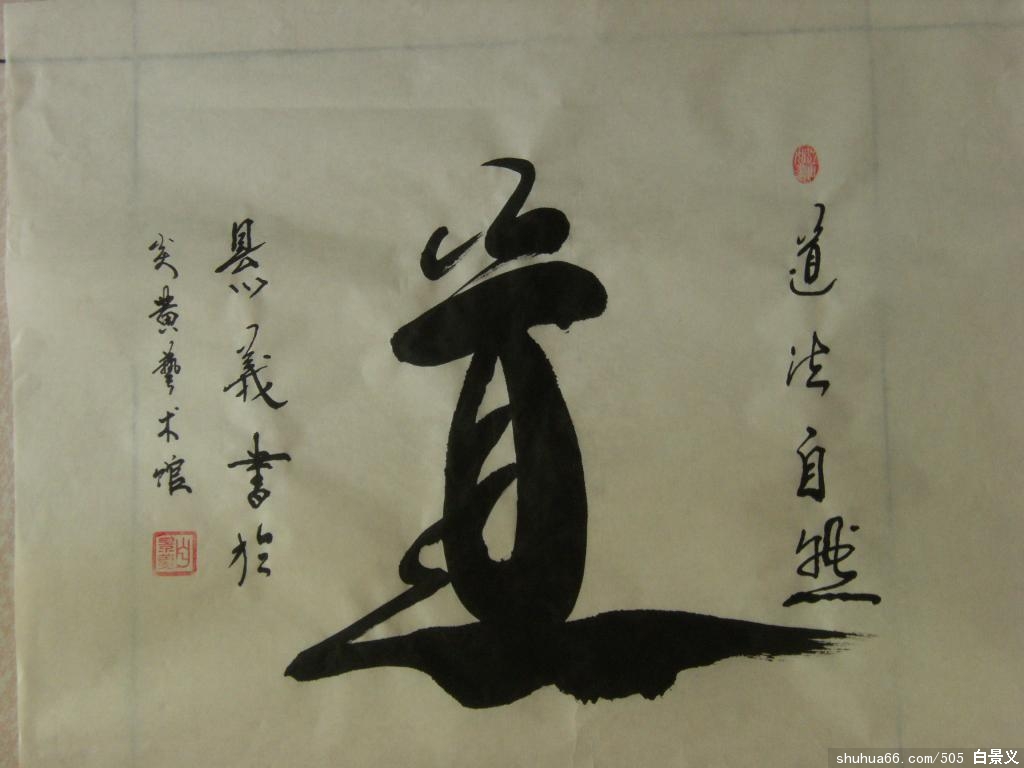 道法自然
道
景義書於
炎黄藝术馆
shuhua66.com/505 白景义